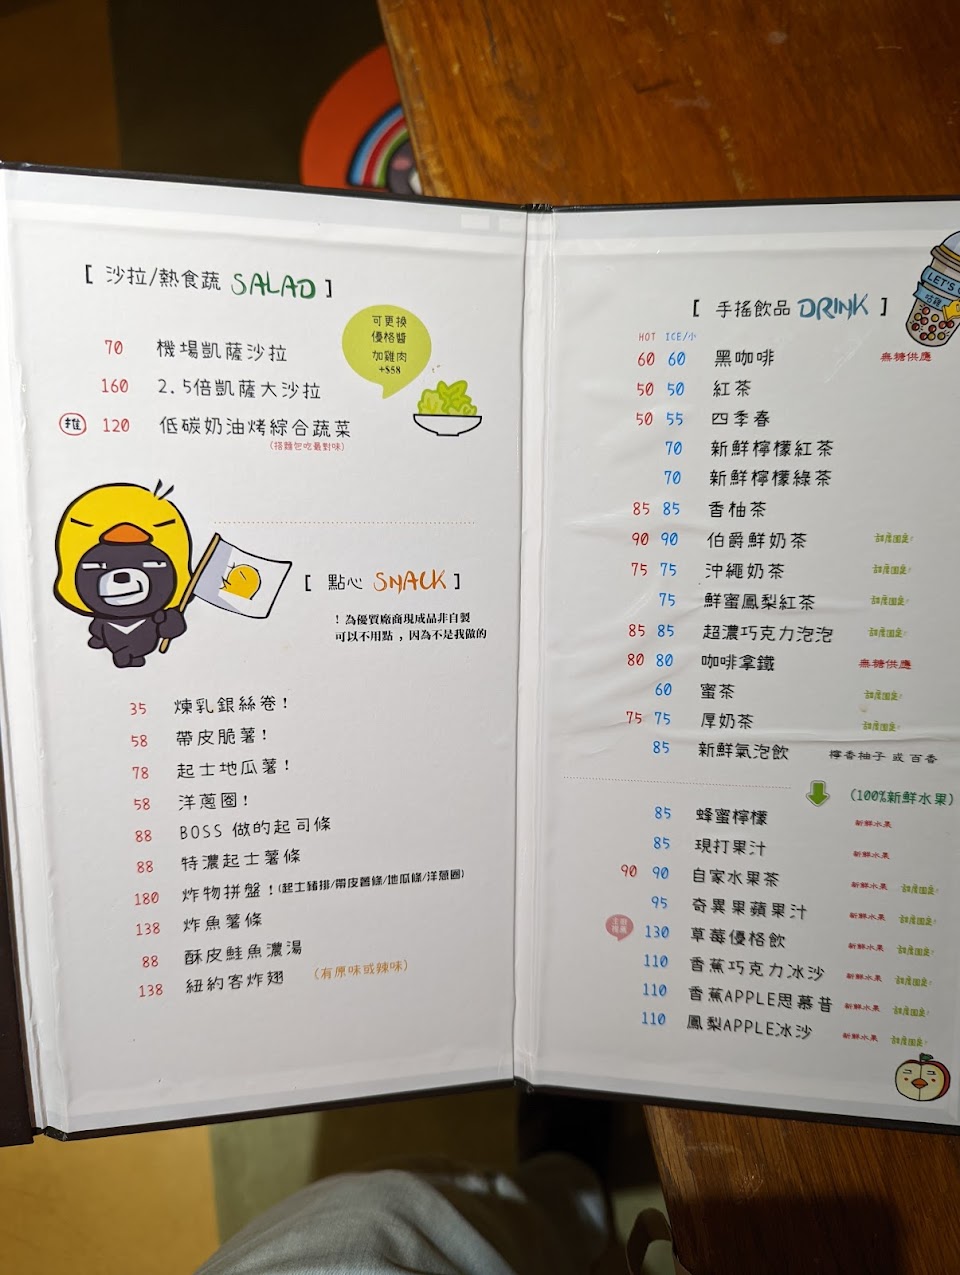 [ 沙拉/熱食蔬 SALAD ]
可更換
優格醬
加雞肉
+$58
70 機場凱薩沙拉
160 2.5倍凱薩大沙拉
推 120 低碳奶油烤綜合蔬菜
(搭麵包吃最對味)
[ 點心 SNACK ]
! 為優質廠商現成品非自製
可以不用點 , 因為不是我做的
35 煉乳銀絲卷!
58 帶皮脆薯!
78 起士地瓜薯!
58 洋蔥圈!
88 BOSS 做的起司條
88 特濃起士薯條
180 炸物拼盤!(起士豬排/帶皮薯條/地瓜條/洋蔥圈)
138 炸魚薯條
88 酥皮鮭魚濃湯
138 紐約客炸翅 (有原味或辣味)
LET'S
[ 手搖飲品 DRINK ]
HOT ICE/小
60 60 黑咖啡 無糖供應
50 50 紅茶
50 55 四季春
70 新鮮檸檬紅茶
70 新鮮檸檬綠茶
85 85 香柚茶
90 90 伯爵鮮奶茶 甜度固定!
75 75 沖繩奶茶 甜度固定!
75 鮮蜜鳳梨紅茶 甜度固定!
85 85 超濃巧克力泡泡 甜度固定!
80 80 咖啡拿鐵 無糖供應
60 蜜茶 甜度固定!
75 75 厚奶茶 甜度固定!
85 新鮮氣泡飲 檸香柚子 或 百香
(100%新鮮水果)
85 蜂蜜檸檬 新鮮水果
85 現打果汁 新鮮水果
90 90 自家水果茶 新鮮水果 甜度固定!
95 奇異果蘋果汁 新鮮水果 甜度固定!
130 草莓優格飲 新鮮水果 甜度固定!
110 香蕉巧克力冰沙 新鮮水果 甜度固定!
110 香蕉APPLE思慕昔 新鮮水果 甜度固定!
110 鳳梨APPLE冰沙 新鮮水果 甜度固定!